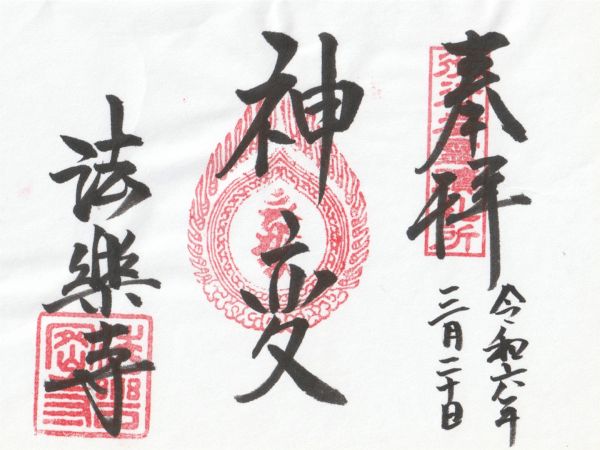 奉拝
令和六年
三月二十日
神変
法樂寺